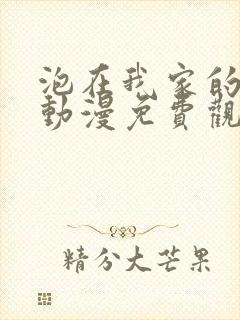 泡在我家的
動漫免費觀
精分大芒果